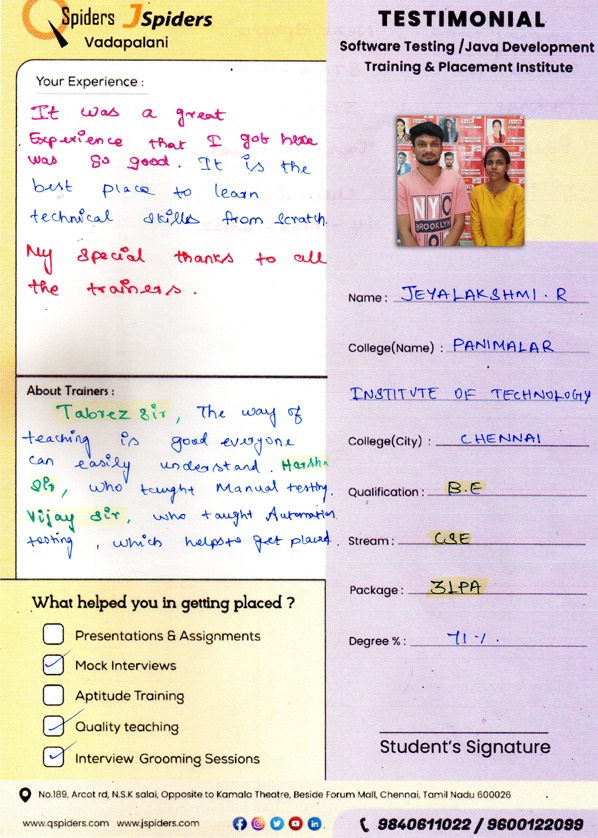 QSpiders JSpiders
Vadapalani
Your Experience :
It was a great
Experience that I got here
was so good. It is the
best place to learn
technical skills from scratch.
My special thanks to all
the trainers.
About Trainers :
Tabrez Sir, The way of
teaching is good everyone
can easily understand. Harsha
Sir, who taught Manual testing.
Vijay Sir, who taught Automation
testing, which helps to get placed.
What helped you in getting placed ?
Presentations & Assignments
Mock Interviews
Aptitude Training
Quality teaching
Interview Grooming Sessions
TESTIMONIAL
Software Testing /Java Development
Training & Placement Institute
NYC
BROOKLYN
Name : JEYALAKSHMI. R
College(Name) : PANIMALAR
INSTITUTE OF TECHNOLOGY
College(City) : CHENNAI
Qualification : B.E
Stream : CSE
Package : 3LPA
Degree % : 71%.
Student's Signature
No.189, Arcot rd, N.S.K salai, Opposite to Kamala Theatre, Beside Forum Mall, Chennai, Tamil Nadu 600026
www.qspiders.com www.jspiders.com
9840611022 / 9600122099